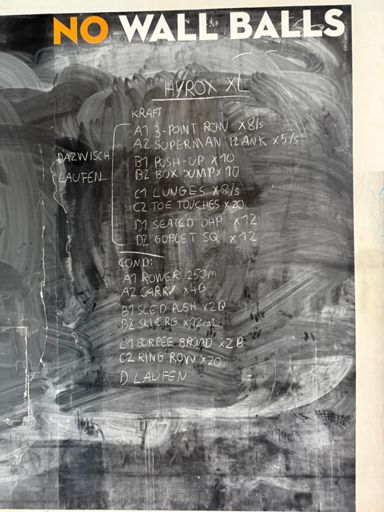 NO WALL BALLS
HYROX XL
KRAFT
A1 3-POINT ROW x8/s
A2 SUPERMAN PLANK x5/s
DAZWISCH
LAUFEN
B1 PUSH-UP x10
B2 BOX JUMP x10
C1 LUNGES x8/s
C2 TOE TOUCHES x20
D1 SEATED OHP x12
D2 GOBLET SQ x12
COND:
A1 ROWER 250m
A2 CARRY x4B
B1 SLED PUSH x2B
B2 SKIERG x12cal
C1 BURPEE BROAD x2B
C2 RING ROW x20
D LAUFEN